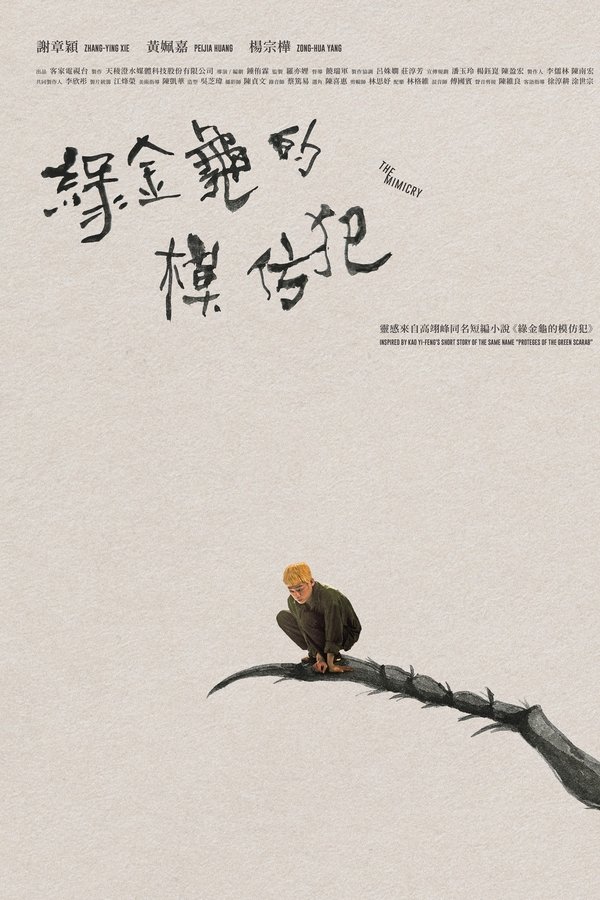 謝章穎 ZHANG-YING XIE 黃姵嘉 PEIJIA HUANG 楊宗樺 ZONG-HUA YANG
出品 客家電視台 製作 天稜澄水媒體科技股份有限公司 導演/編劇 鍾侑霖 監製 羅亦娌 督導 饒瑞軍 製作協調 呂姝嫻 莊淳芳 宣傳規劃 潘玉玲 楊鈺崑 陳盈宏 製作人 李儒林 陳南宏
共同製作人 李欣彤 製片統籌 江烽榮 美術指導 陳凱華 造型 吳芝瑋 攝影師 陳貞文 錄音師 蔡篤易 選角 陳喜惠 剪輯師 林思妤 配樂 林格維 混音師 傅國賓 聲音剪接 陳維良 客語指導 徐淳耕 涂世宗
綠金龜的
THE
MIMICRY
模仿犯
靈感來自高翊峰同名短編小說《綠金龜的模仿犯》
INSPIRED BY KAO YI-FENG'S SHORT STORY OF THE SAME NAME "PROTEGES OF THE GREEN SCARAB"